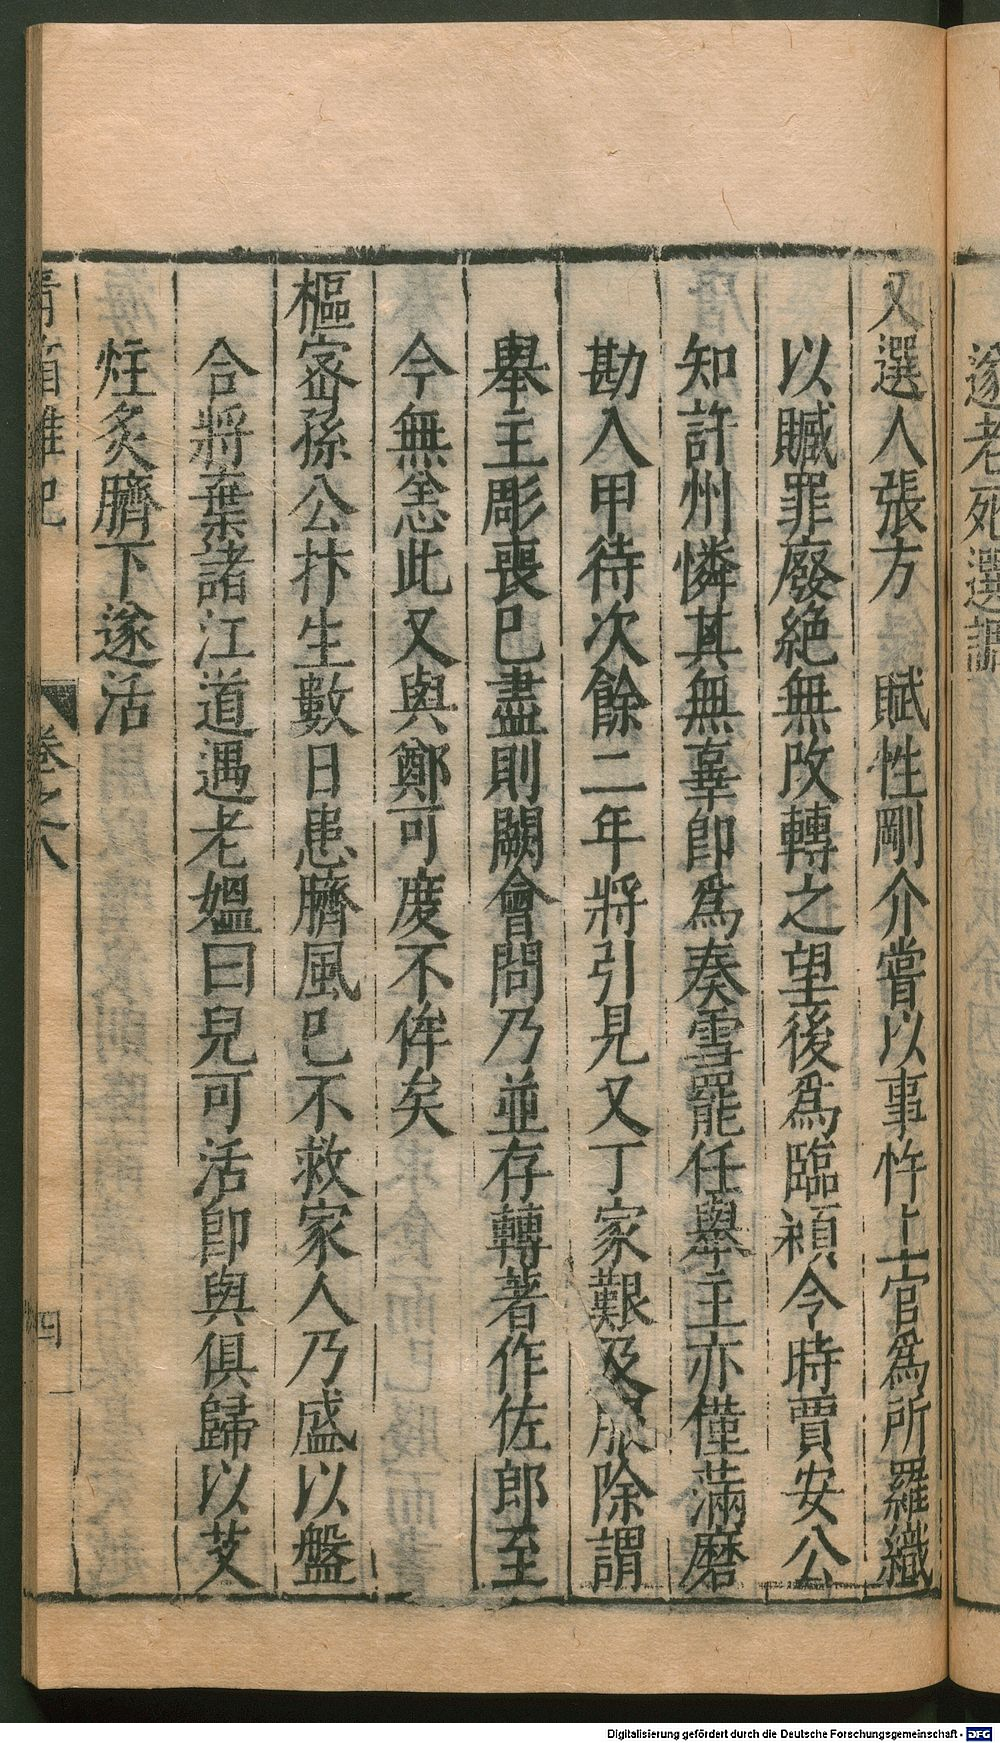 遂老死選調
又選人張方　賦性剛介嘗以事忤上官爲所羅織
以贓罪廢絶無改轉之望後爲臨潁令時賈安公
知許州憐其無辜卽爲奏雪罷任舉主亦僅滿磨
勘入甲待次餘二年將引見又丁家艱及服除謂
舉主彫喪已盡則闕會問乃並存轉著作佐郎至
今無恙此又與鄭可度不侔矣
樞宻孫公抃生數日患臍風已不救家人乃盛以盤
合將棄諸江道遇老媼曰兒可活卽與俱歸以艾
炷炙臍下遂活
青箱雜記
卷之八
四
Digitalisierung gefördert durch die Deutsche Forschungsgemeinschaft - DFG